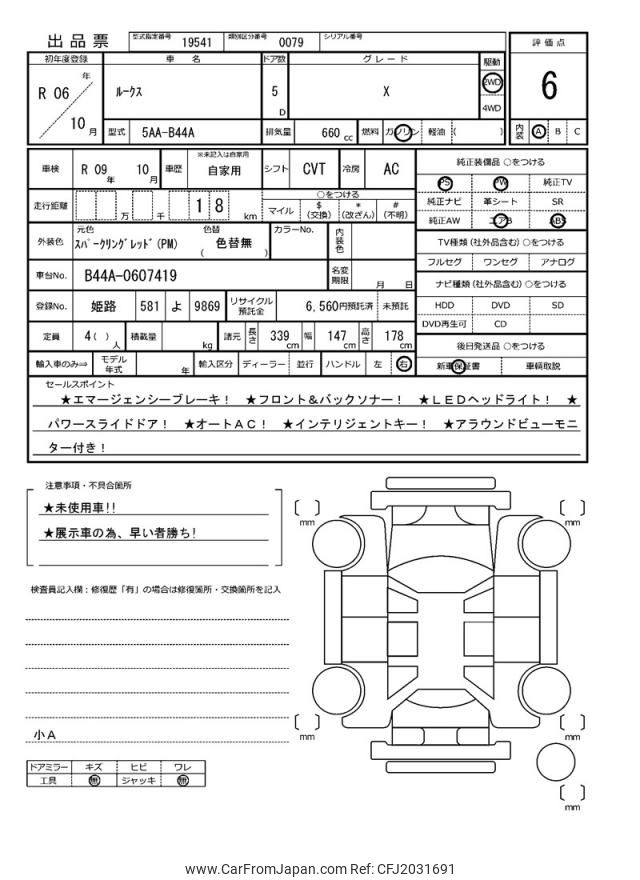 出品票 型式指定番号 19541 類別区分番号 0079 シリアル番号
評価点
6
内装 A B C
初年度登録 車名 ドア数 グレード 駆動
R 06 年 10 月 ルークス 5 D X 2WD 4WD
型式 5AA-B44A 排気量 660 cc 燃料 ガソリン 軽油 ( )
車検 R 09 年 10 月 車歴 ※未記入は自家用 自家用 シフト CVT 冷房 AC
走行距離 万 千 1 8 km ○をつける
マイル $ (交換) * (改ざん) # (不明)
外装色 元色 スパークリングレッド(PM) 色替 ( 色替無 ) カラーNo. 内装色
車台No. B44A-0607419 名変期限 月 日
登録No. 姫路 581 よ 9869 リサイクル預託金 6,560円預託済 未預託
定員 4( ) 人 積載量 kg 諸元 長さ 339 cm 幅 147 cm 高さ 178 cm
輸入車のみ⇒ モデル年式 年 輸入区分 ディーラー 並行 ハンドル 左 右
純正装備品 ○をつける
PS PW 純正TV
純正ナビ 革シート SR
純正AW エアB ABS
TV種類 (社外品含む) ○をつける
フルセグ ワンセグ アナログ
ナビ種類 (社外品含む) ○をつける
HDD DVD SD
DVD再生可 CD
後日発送品 ○をつける
新車保証書 車輌取説
セールスポイント
★エマージェンシーブレーキ! ★フロント&バックソナー! ★LEDヘッドライト! ★
パワースライドドア! ★オートAC! ★インテリジェントキー! ★アラウンドビューモニ
ター付き!
注意事項・不具合箇所
★未使用車!!
★展示車の為、早い者勝ち!
検査員記入欄:修復歴「有」の場合は修復箇所・交換箇所を記入
小A
ドアミラー キズ ヒビ ワレ
工具 無 ジャッキ 無
mm
mm
mm
mm
mm
www.CarFromJapan.com Ref: CFJ2031691